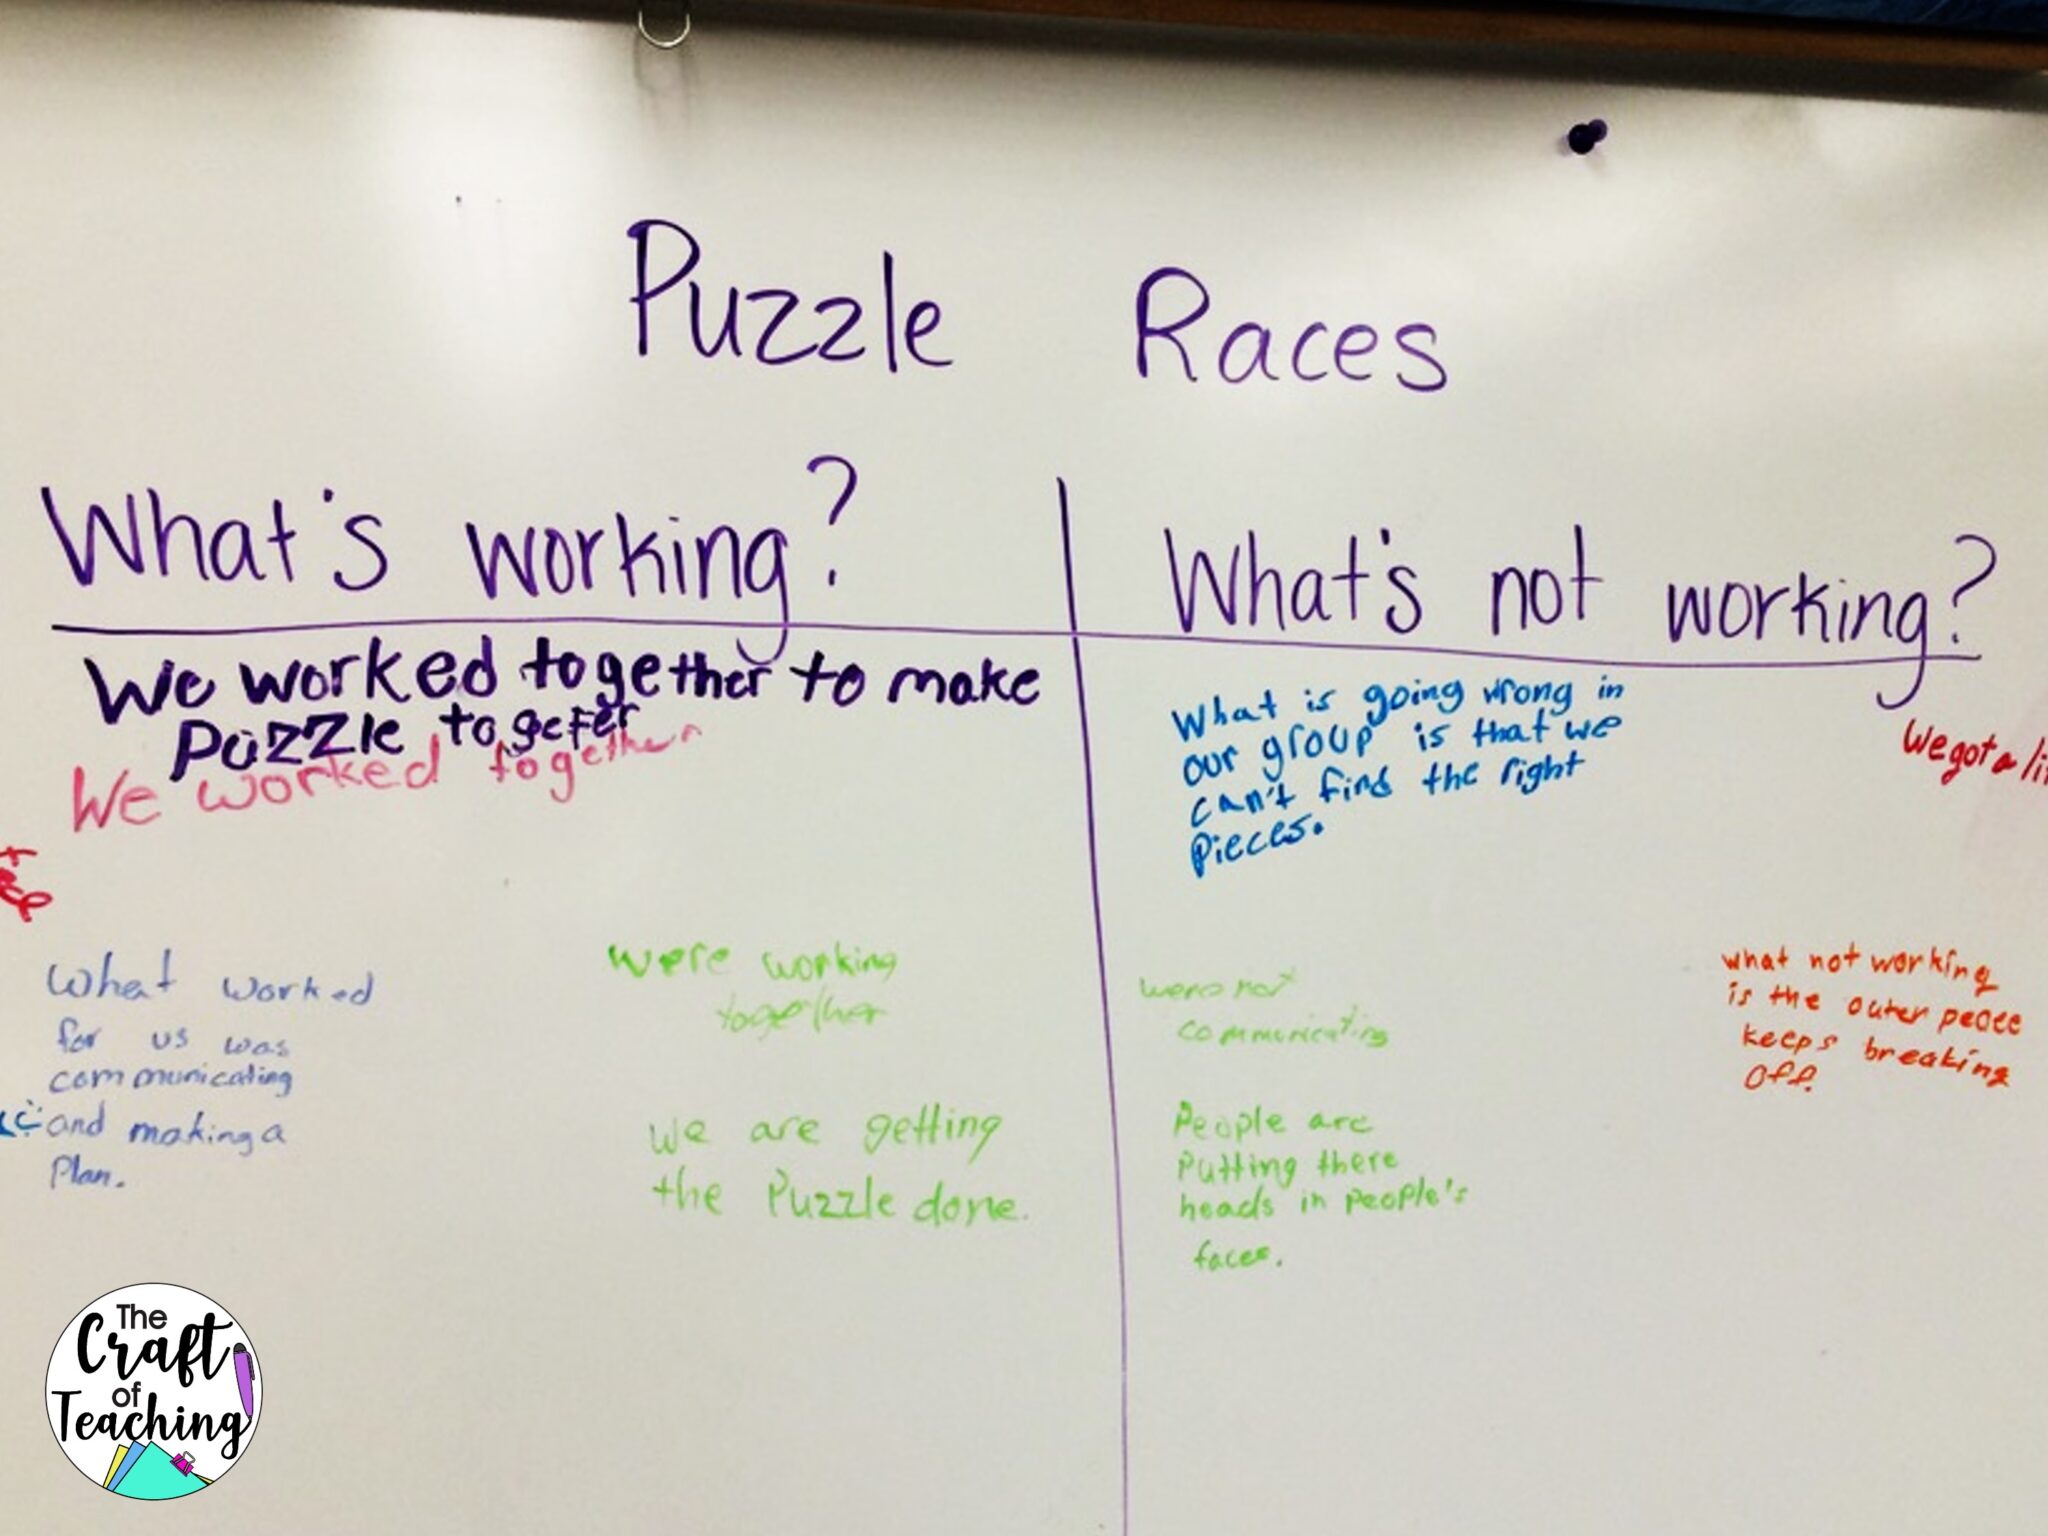 Puzzle Races
What's working?
What's not working?
We worked together to make
puzzle togefer
We worked together
What worked
for us was
communicating
and making a
plan.
were working
together
we are getting
the Puzzle done.
What is going wrong in
our group is that we
can't find the right
pieces.
We got a
were not
communicating
People are
putting there
heads in people's
faces.
what not working
is the outer peace
keeps breaking
off.
The
Craft
of
Teaching